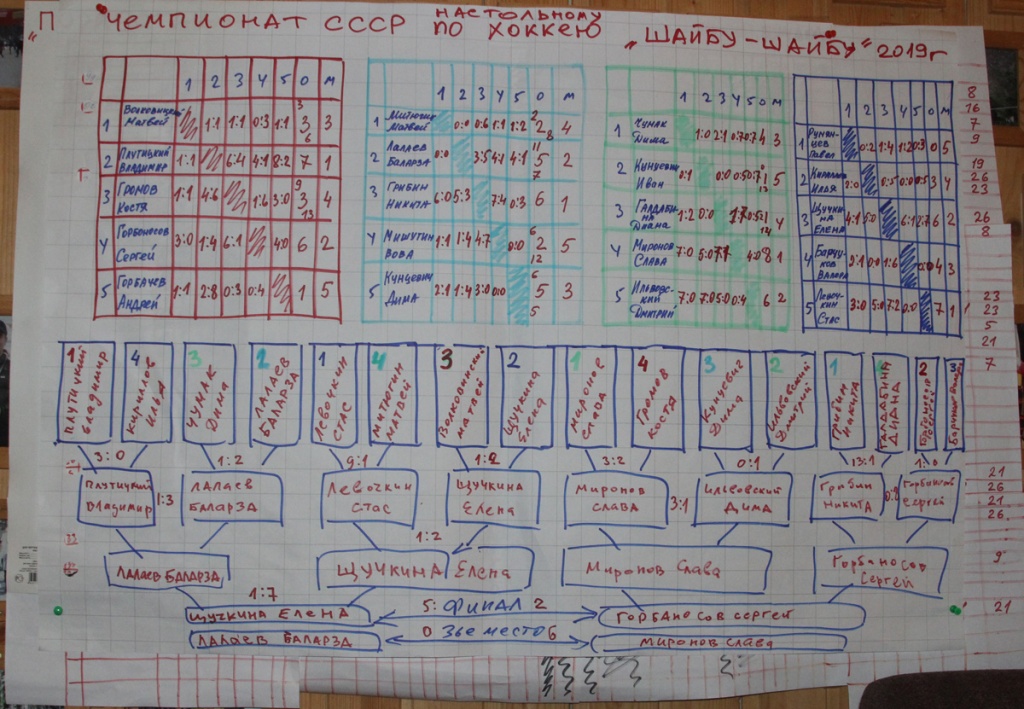 "П ЧЕМПИОНАТ СССР ПО НАСТОЛЬНОМУ ХОККЕЮ „ШАЙБУ-ШАЙБУ" 2019г
1 2 3 4 5 О М
1 Волковинский Матвей 1:1 1:1 0:3 1:1 3 3 6 3
2 Плутицкий Владимир 1:1 6:4 4:1 8:2 7 1
3 Громов Костя 1:1 4:6 1:6 3:0 9 3 13 4
4 Горбоносов Сергей 3:0 1:4 6:1 4:0 6 2
5 Горбачев Андрей 1:1 2:8 0:3 0:4 1 5
1 2 3 4 5 О М
1 Митюгин Матвей 0:0 0:6 1:1 1:2 2 2 8 4
2 Лалаев Баларза 0:0 3:5 4:1 4:1 11 5 7 2
3 Грибин Никита 6:0 5:3 7:4 0:3 6 1
4 Мишутин Вова 1:1 1:4 4:7 0:0 6 2 12 5
5 Кунцевич Дима 2:1 1:4 3:0 0:0 6 5 5 3
1 2 3 4 5 О М
1 Чумак Дима 1:0 2:1 0:7 0:7 4 3
2 Кунцевич Иван 0:1 0:0 0:5 0:7 1 13 5
3 Галдабина Диана 1:2 0:0 1:7 0:5 4
4 Миронов Слава 7:0 5:0 7:1 4:0 8 1
5 Ильвовский Дмитрий 7:0 7:0 5:0 0:4 6 2
1 2 3 4 5 О М
1 Румянцев Павел 0:2 1:4 0:3 0 5
2 Кирилов Илья 2:0 0:5 0:0 0:5 3 4
3 Щучкина Елена 4:1 5:0 6:1 2:7 6 2
4 0:0 1:6 0:0 4 3
5 Левочкин Стас 3:0 5:0 7:2 0:0 7 1
8
16
7
9
19
26
23
26
8
23
23
5
21
7
21
26
21
26
9
21
1 4 3 2 1 4 3 2 1 4 3 2 1 2 3
Плутицкий Владимир
Кирилов Илья
Чумак Дима
Лалаев Баларза
Левочкин Стас
Митюгин Матвей
Волковинский Матвей
Щучкина Елена
Миронов Слава
Громов Костя
Кунцевич Дима
Ильвовский Дмитрий
Грибин Никита
Галдабина Диана
3:0 1:2 9:1 1:2 3:2 0:1 13:1
Плутицкий Владимир 1:3 Лалаев Баларза
Левочкин Стас
Щучкина Елена
Миронов Слава 3:1 Ильвовский Дима
Грибин Никита
Горбаносов Сергей
1:2
Лалаев Баларза
Щучкина Елена
Миронов Слава
Горбаносов Сергей
1:7
Щучкина Елена 5: Финал 2 Горбаносов Сергей
Лалаев Баларза 0 3ье место 6 Миронов Слава